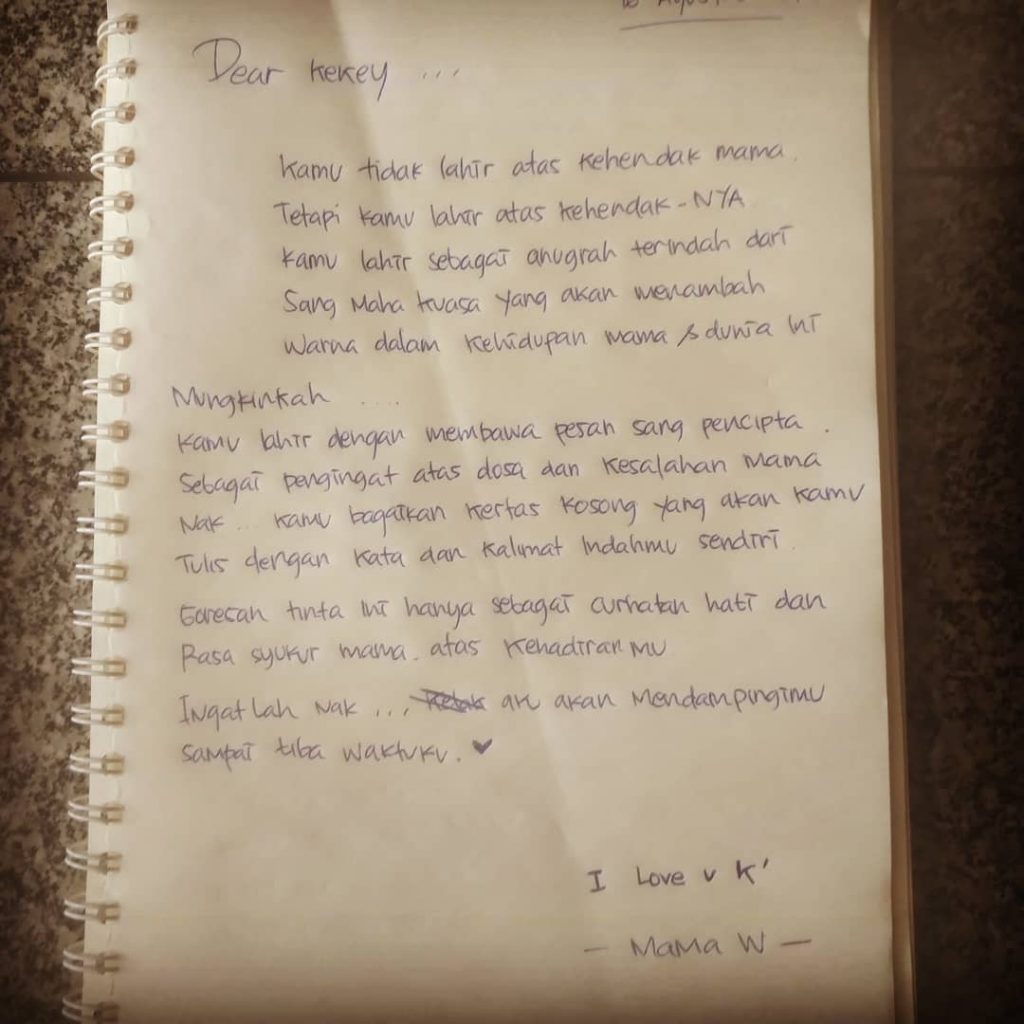 Dear Kekey ...
Kamu tidak lahir atas kehendak mama.
Tetapi kamu lahir atas kehendak-NYA
Kamu lahir sebagai anugrah terindah dari
Sang Maha Kuasa yang akan menambah
Warna dalam kehidupan mama & dunia ini
Mungkinkah ....
Kamu lahir dengan membawa pesan sang pencipta .
Sebagai pengingat atas dosa dan kesalahan Mama
Nak ... kamu bagaikan kertas kosong yang akan kamu
Tulis dengan kata dan kalimat indahmu sendiri.
Goresan tinta ini hanya sebagai curhatan hati dan
Rasa syukur mama. atas kehadiranMU
Ingatlah Nak ... aku akan Mendampingimu
sampai tiba waktuku. ♥
I Love u K'
- MaMa W -